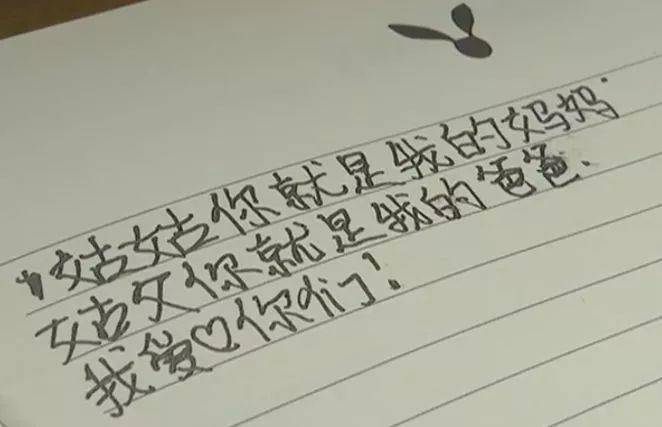 姑姑你就是我的妈妈
姑父你就是我的爸爸.
我爱♡你们!